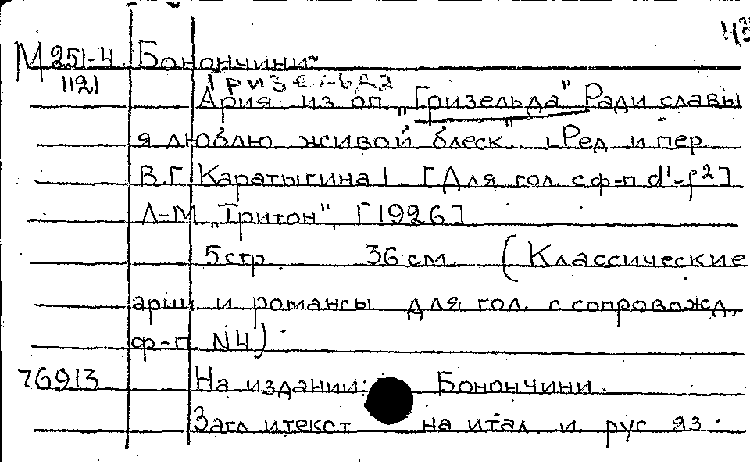 М 251-4 Бонончини
1121 Гризельда
Ария из оп. „Гризельда" Ради славы
я люблю живой блеск" [Ред и пер
В.Г. Каратыгина] [Для гол с ф-п d¹-f²]
Л-М „Тритон" [1926]
5 стр. 36 см. (Классические
арии и романсы для гол. с сопровожд.
ф-п N4)
76913 На издании: Бонончини.
Загл и текст на итал. и рус яз.